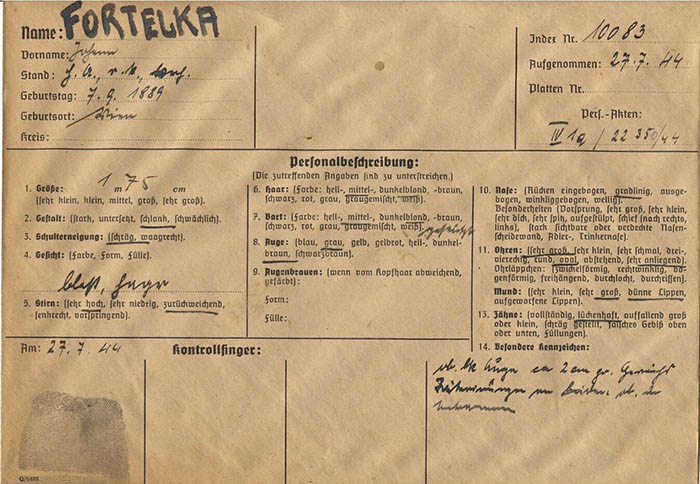 Name: FORTELKA
Vorname: Johann
Stand:
Geburtstag: 7. 9. 1889
Geburtsort: Wien
Kreis:
Index Nr. 10083
Aufgenommen: 27. 7. 44
Platten Nr.
Pers.-Akten:
IV 1a / 22 350/44
Personalbeschreibung:
(Die zutreffenden Angaben sind zu unterstreichen.)
1. Größe: 1 m 75 cm
(sehr klein, klein, mittel, groß, sehr groß).
2. Gestalt: (stark, untersetzt, schlank, schwächlich).
3. Schulterneigung: (schräg, waagrecht).
4. Gesicht: (Farbe, Form, Fülle).
blaß, hager
5. Stirn: (sehr hoch, sehr niedrig, zurückweichend,
senkrecht, vorspringend).
6. Haar: (Farbe: hell-, mittel-, dunkelblond, -braun,
schwarz, rot, grau, graugemischt, weiß).
7. Bart: (Farbe: hell-, mittel-, dunkelblond, -braun,
schwarz, rot, grau, graugemischt, weiß).
8. Auge: (blau, grau, gelb, gelbrot, hell-, dunkel-
braun, schwarzbraun).
9. Augenbrauen: (wenn vom Kopfhaar abweichend,
gefärbt):
Form:
Fülle:
10. Nase: (Rücken eingebogen, gradlinig, ausge-
bogen, winkliggebogen, wellig).
Besonderheiten (Vorsprung, sehr groß, sehr klein,
sehr dick, sehr spitz, aufgestülpt, schief (nach rechts,
links), stark sichtbare oder verdeckte Nasen-
scheidewand, Adler-, Trinkernase).
11. Ohren: (sehr groß, sehr klein, sehr schmal, drei-,
viereckig, rund, oval, abstehend, sehr anliegend).
Ohrläppchen: (zwickelförmig, rechtwinklig, bo-
genförmig, freihängend, durchlocht, durchrissen).
Mund: (sehr klein, sehr groß, dünne Lippen,
aufgeworfene Lippen).
13. Zähne: (vollständig, lückenhaft, auffallend groß
oder klein, schräg gestellt, falsches Gebiß oben
oder unten, Füllungen).
14. Besondere Kennzeichen:
Am: 27. 7. 44
Kontrollfinger:
ob. lk Auge ca 2 cm gr.